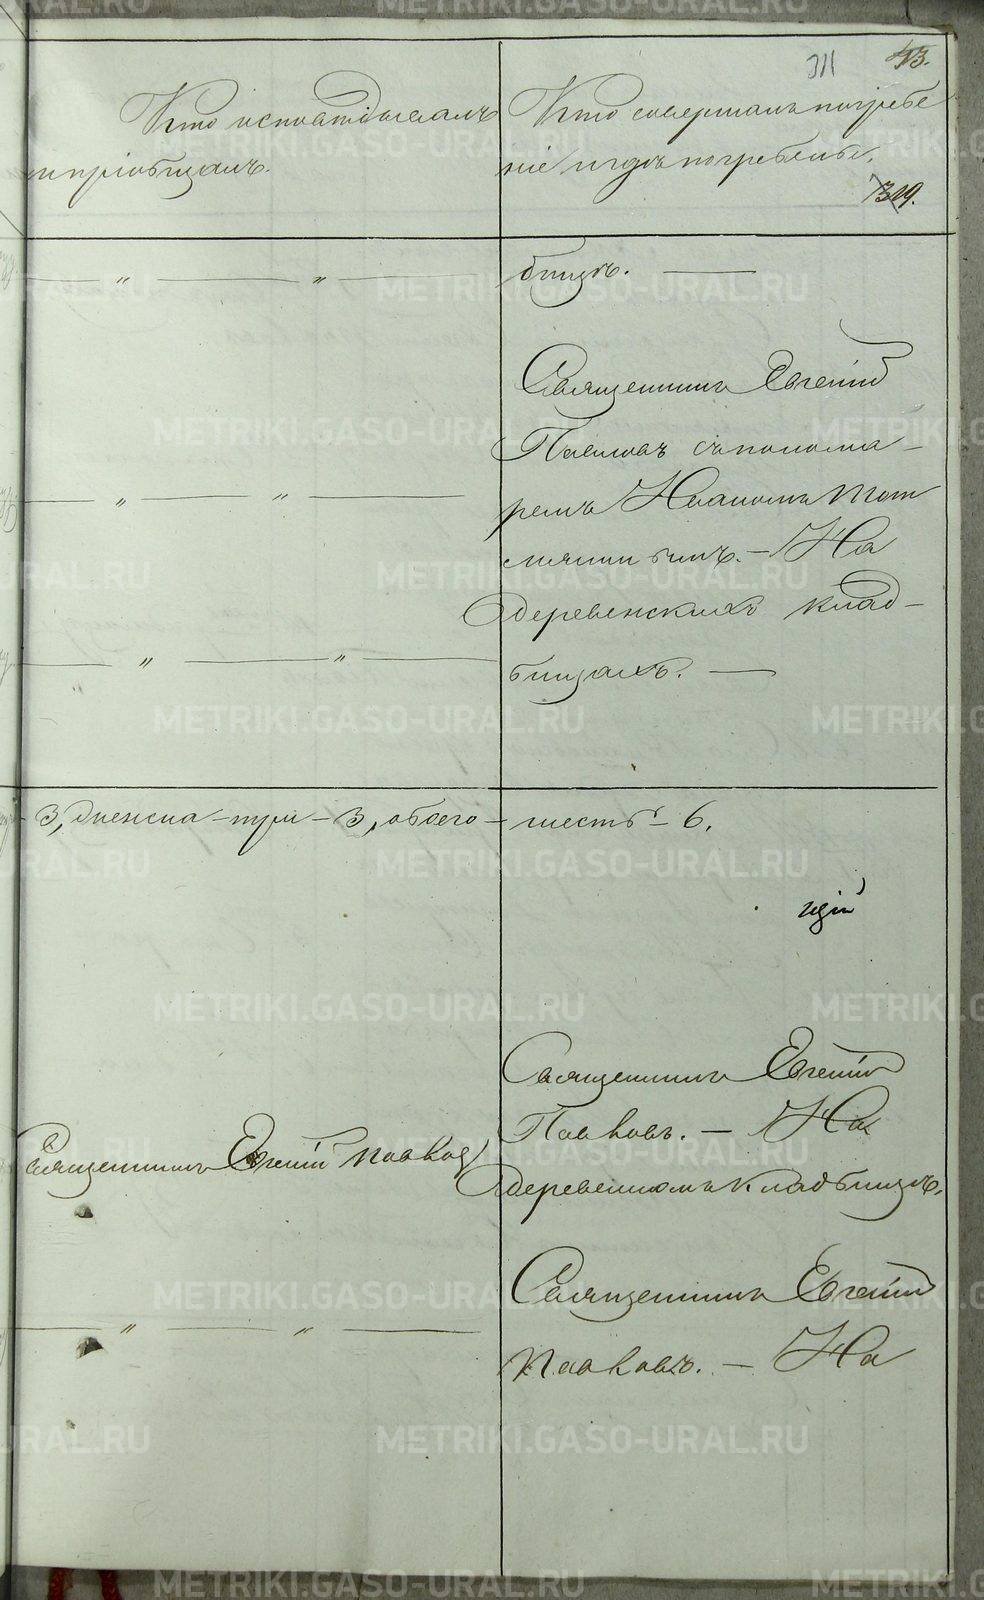 311 43.
Кто исповѣдывалъ
и пріобщалъ.
Кто совершалъ погребе
ніе и гдѣ погребены.
319.
— " — " —
бищѣ. —
Священникъ Евгеній
Павловъ съ понома-
— " — " —
ремъ Иваномъ
— На
деревенскихъ клад-
— " — " —
бищахъ. —
3, женска – три – 3, обоего – шесть – 6.
Священникъ Евгеній
Павловъ. — На
Священникъ Евгеній Павловъ
деревенскомъ кладбищѣ.
Священникъ Евгеній
— " — " —
Павловъ. — На
METRIKI.GASO-URAL.RU